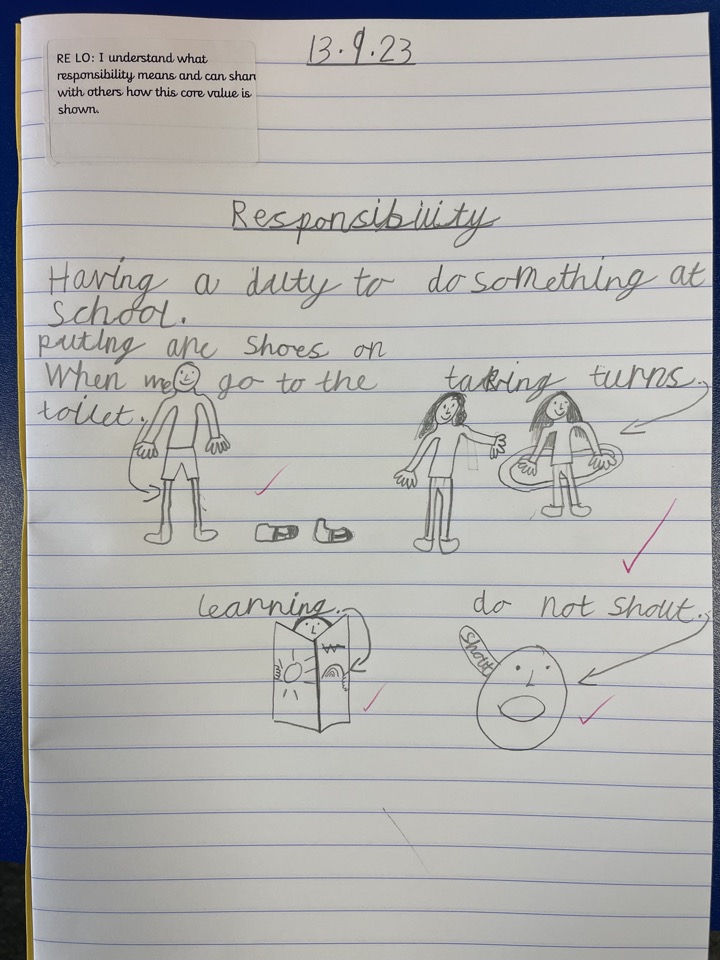 13.9.23
RE LO: I understand what
responsibility means and can shar
with others how this core value is
shown.
Responsibility
Having a duty to do something at
School.
puting are shoes on
When we go to the
toilet.
taking turns.
learning.
do not shout.
Shout